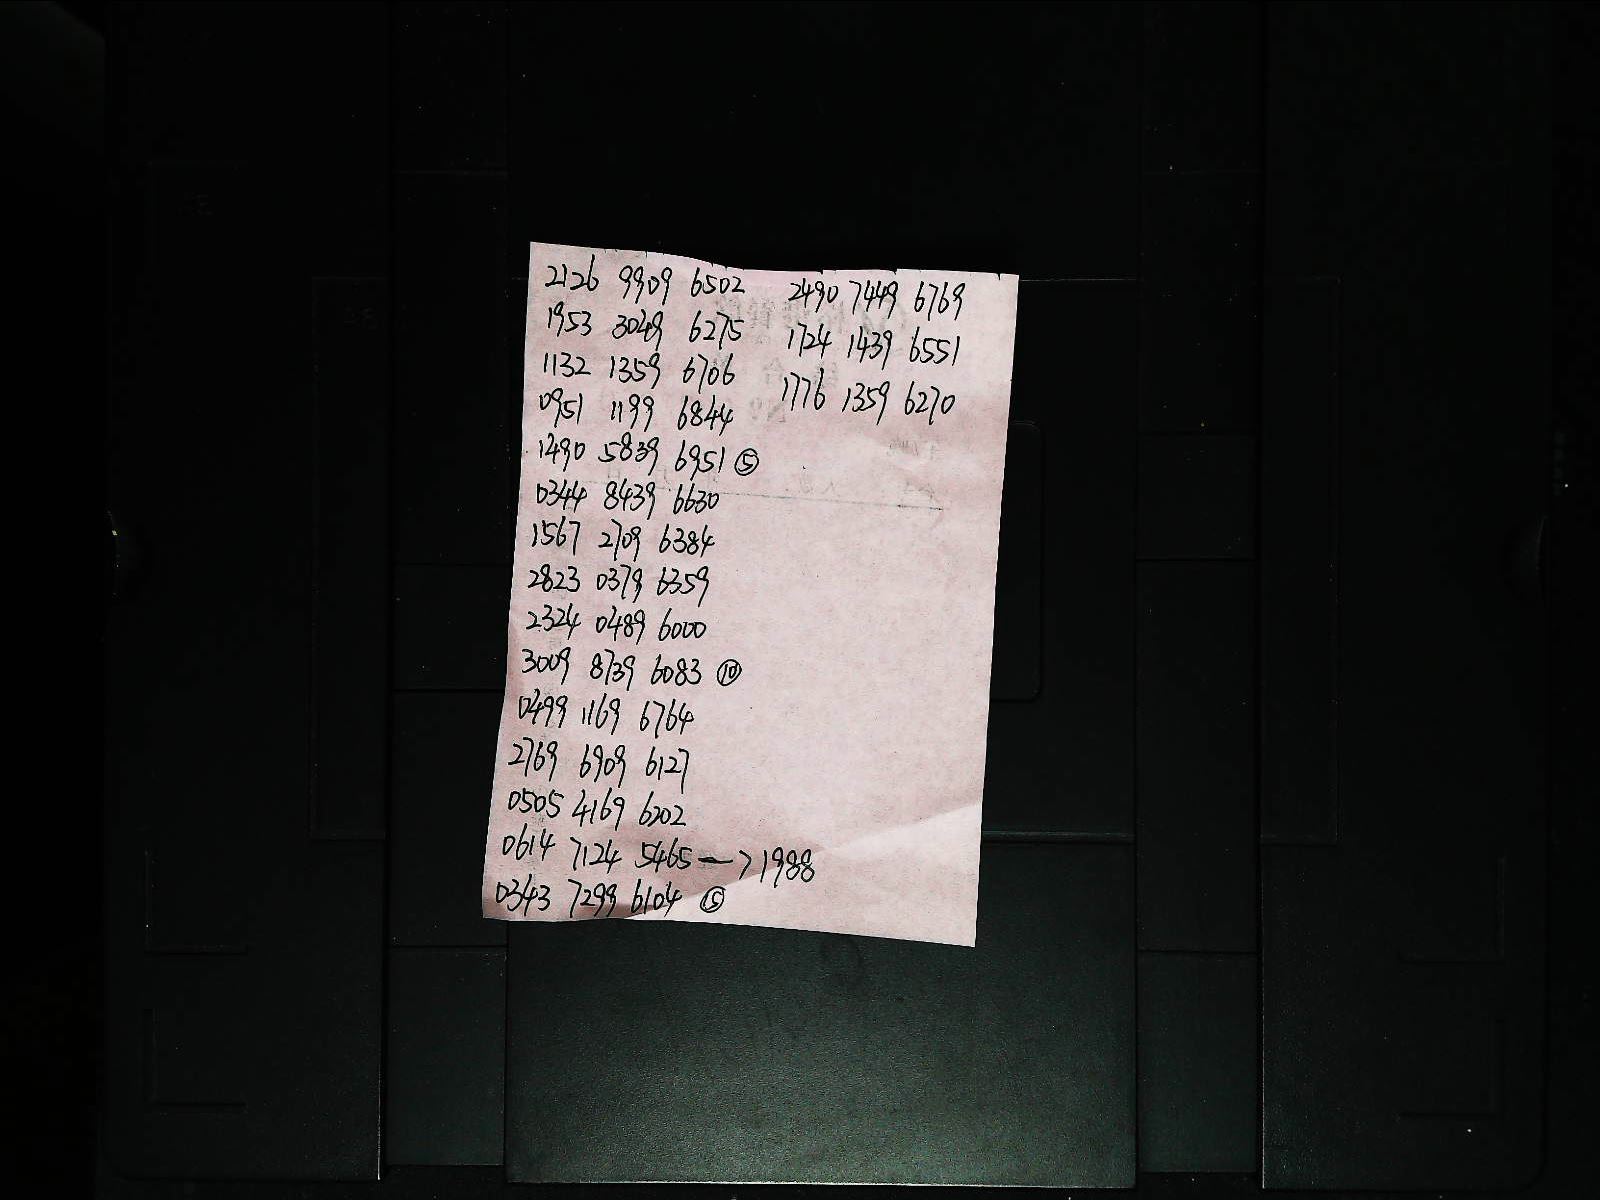 2126 9909 6502
1953 3049 6275
1132 1359 6706
0951 1199 6844
1490 5839 6951 ⑤
0344 8439 6630
1567 2709 6384
2823 0379 6359
2324 0489 6000
3009 8739 6083 ⑩
0499 1169 6764
2769 6909 6127
0505 4169 6202
0614 7124 5465 —> 1988
0343 7299 6104 ⑮
2490 7449 6769
1724 1439 6551
1776 1359 6270